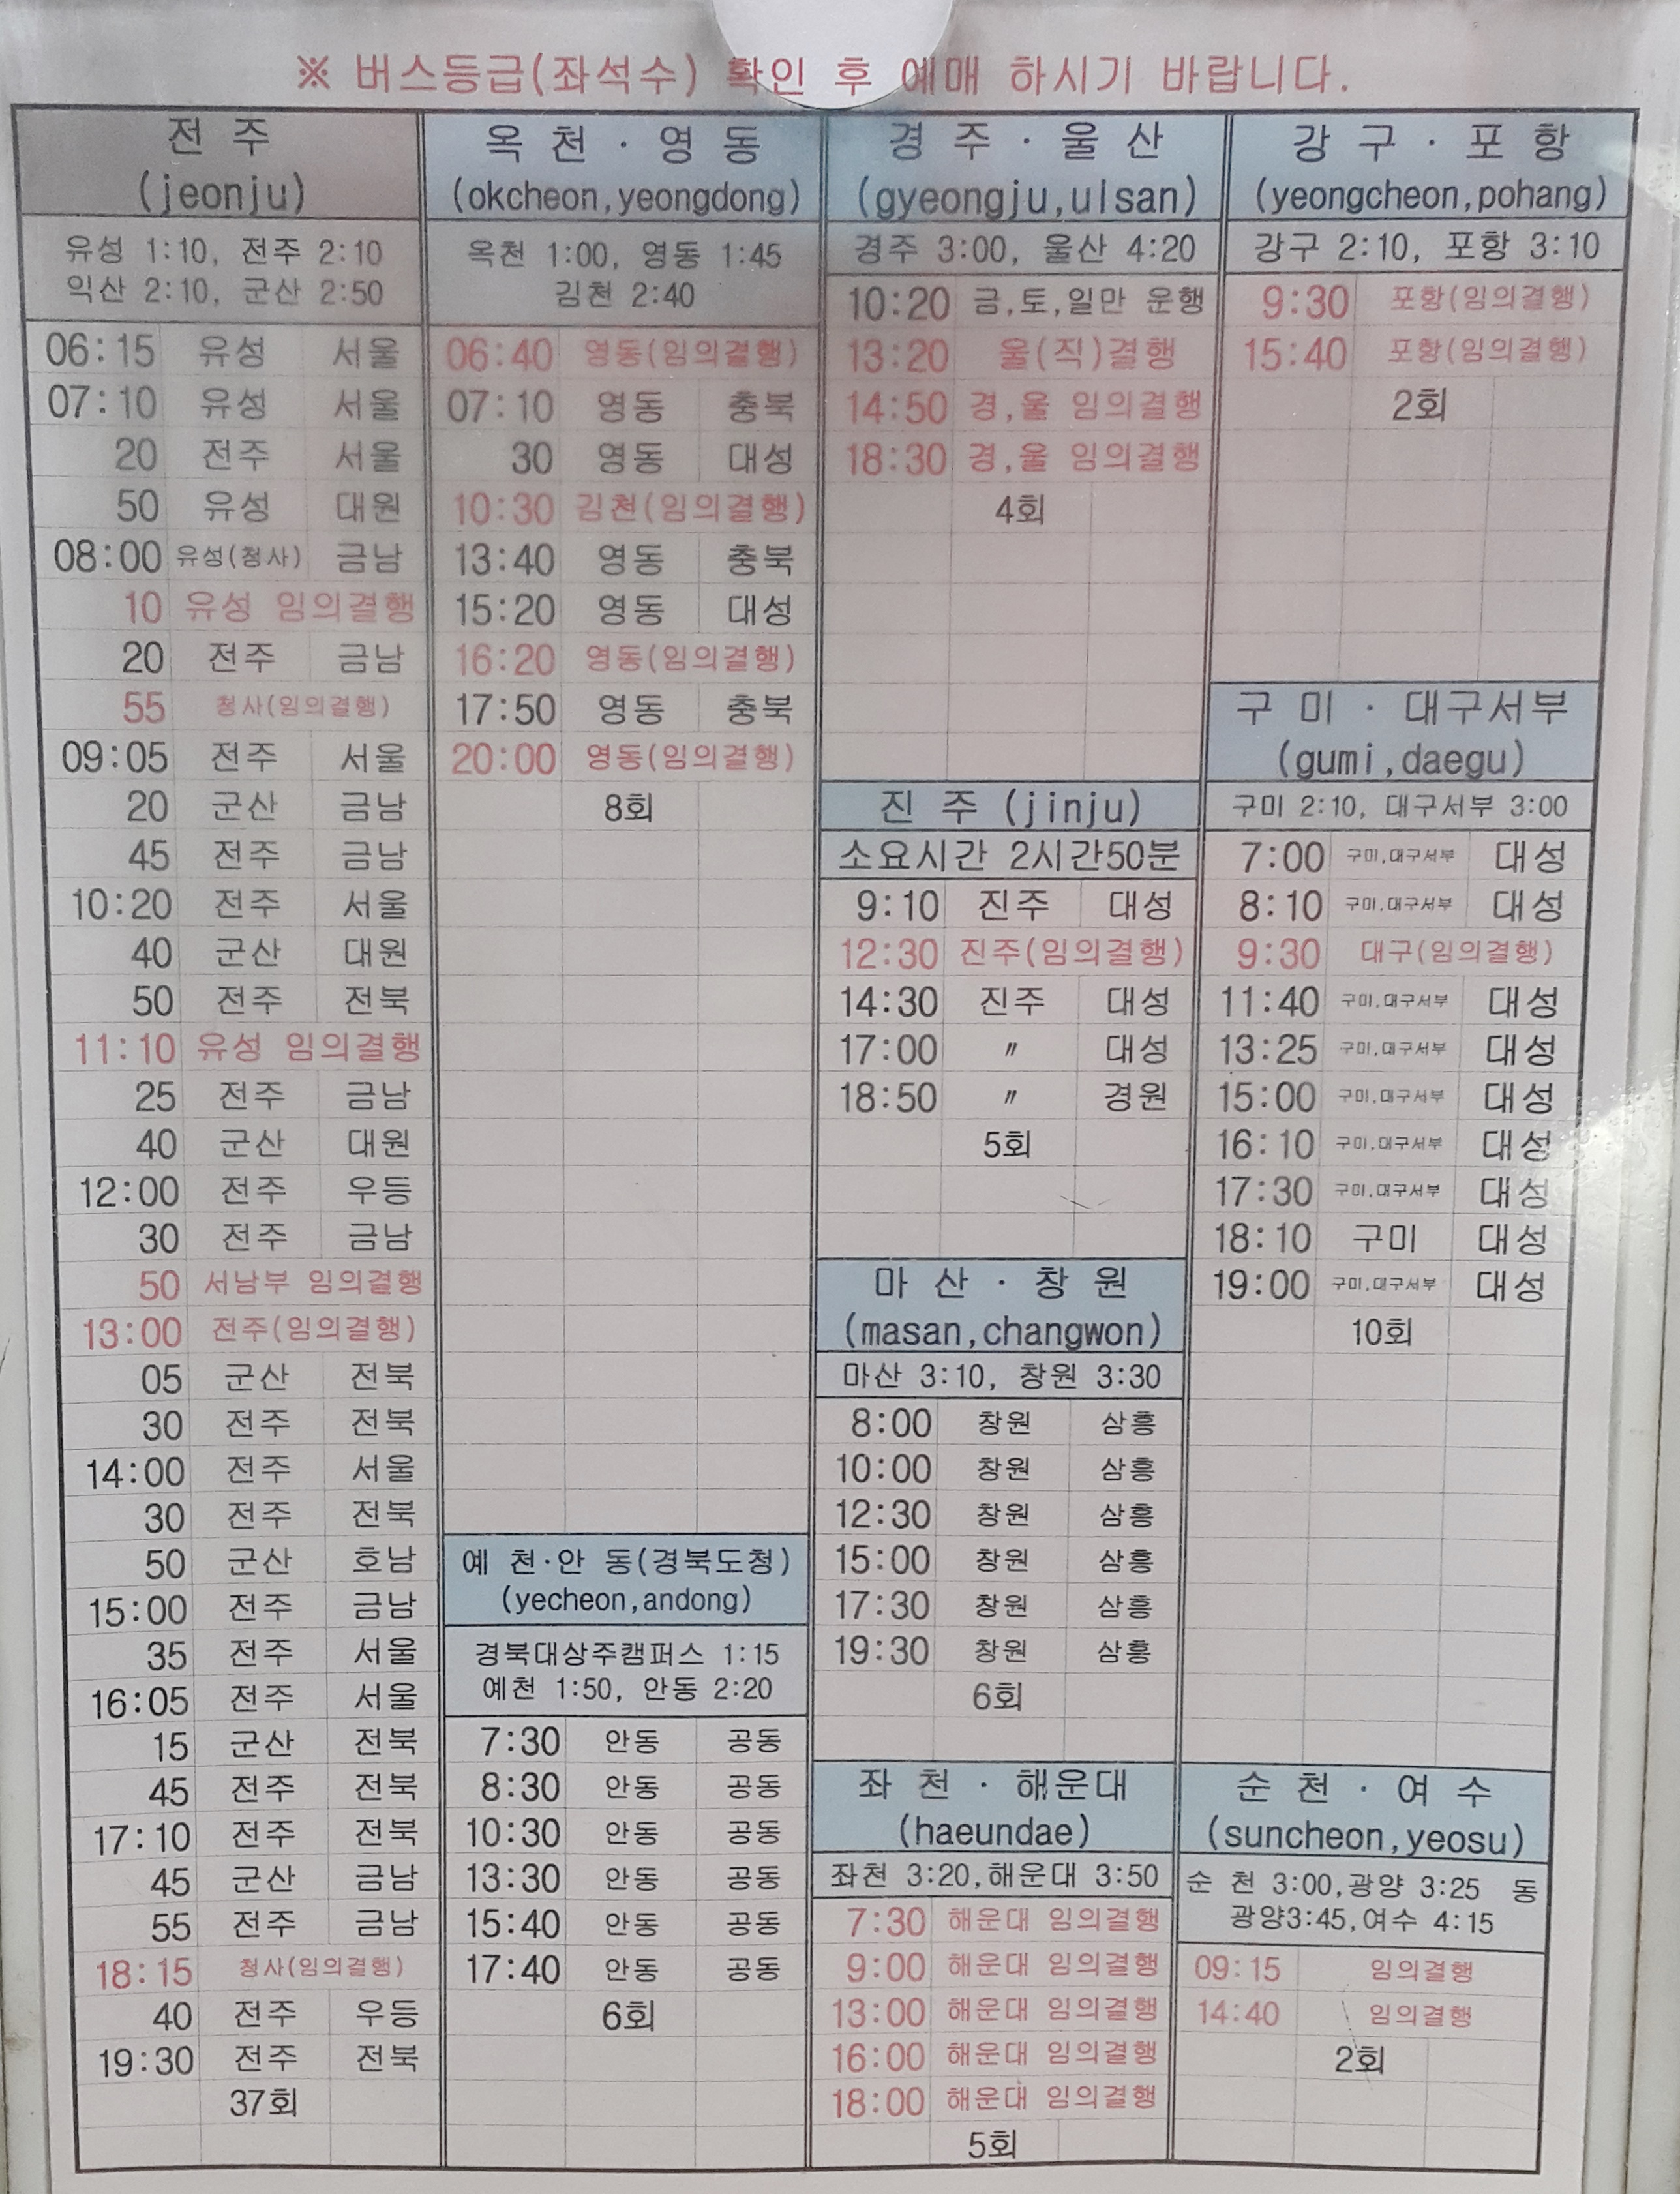 ※ 버스등급(좌석수) 확인 후 예매 하시기 바랍니다.
전 주
(jeonju)
유성 1:10, 전주 2:10
익산 2:10, 군산 2:50
06:15 유성 서울
07:10 유성 서울
20 전주 서울
50 유성 대원
08:00 유성(청사) 금남
10 유성 임의결행
20 전주 금남
55 청사(임의결행)
09:05 전주 서울
20 군산 금남
45 전주 금남
10:20 전주 서울
40 군산 대원
50 전주 전북
11:10 유성 임의결행
25 전주 금남
40 군산 대원
12:00 전주 우등
30 전주 금남
50 서남부 임의결행
13:00 전주(임의결행)
05 군산 전북
30 전주 전북
14:00 전주 서울
30 전주 전북
50 군산 호남
15:00 전주 금남
35 전주 서울
16:05 전주 서울
15 군산 전북
45 전주 전북
17:10 전주 전북
45 군산 금남
55 전주 금남
18:15 청사(임의결행)
40 전주 우등
19:30 전주 전북
37회
옥 천 · 영 동
(okcheon,yeongdong)
옥천 1:00, 영동 1:45
김천 2:40
06:40 영동(임의결행)
07:10 영동 충북
30 영동 대성
10:30 김천(임의결행)
13:40 영동 충북
15:20 영동 대성
16:20 영동(임의결행)
17:50 영동 충북
20:00 영동(임의결행)
8회
예 천·안 동(경북도청)
(yecheon,andong)
경북대상주캠퍼스 1:15
예천 1:50, 안동 2:20
7:30 안동 공동
8:30 안동 공동
10:30 안동 공동
13:30 안동 공동
15:40 안동 공동
17:40 안동 공동
6회
경 주 · 울 산
(gyeongju,ulsan)
경주 3:00, 울산 4:20
10:20 금,토,일만 운행
13:20 울(직)결행
14:50 경,울 임의결행
18:30 경,울 임의결행
4회
진 주 (jinju)
소요시간 2시간50분
9:10 진주 대성
12:30 진주(임의결행)
14:30 진주 대성
17:00 〃 대성
18:50 〃 경원
5회
마 산 · 창 원
(masan,changwon)
마산 3:10, 창원 3:30
8:00 창원 삼흥
10:00 창원 삼흥
12:30 창원 삼흥
15:00 창원 삼흥
17:30 창원 삼흥
19:30 창원 삼흥
6회
좌 천 · 해운대
(haeundae)
좌천 3:20,해운대 3:50
7:30 해운대 임의결행
9:00 해운대 임의결행
13:00 해운대 임의결행
16:00 해운대 임의결행
18:00 해운대 임의결행
5회
강 구 · 포 항
(yeongcheon,pohang)
강구 2:10, 포항 3:10
9:30 포항(임의결행)
15:40 포항(임의결행)
2회
구 미 · 대구서부
(gumi,daegu)
구미 2:10, 대구서부 3:00
7:00 구미,대구서부 대성
8:10 구미,대구서부 대성
9:30 대구(임의결행)
11:40 구미,대구서부 대성
13:25 구미,대구서부 대성
15:00 구미,대구서부 대성
16:10 구미,대구서부 대성
17:30 구미,대구서부 대성
18:10 구미 대성
19:00 구미,대구서부 대성
10회
순 천 · 여 수
(suncheon,yeosu)
순 천 3:00,광양 3:25 동
광양3:45,여수 4:15
09:15 임의결행
14:40 임의결행
2회